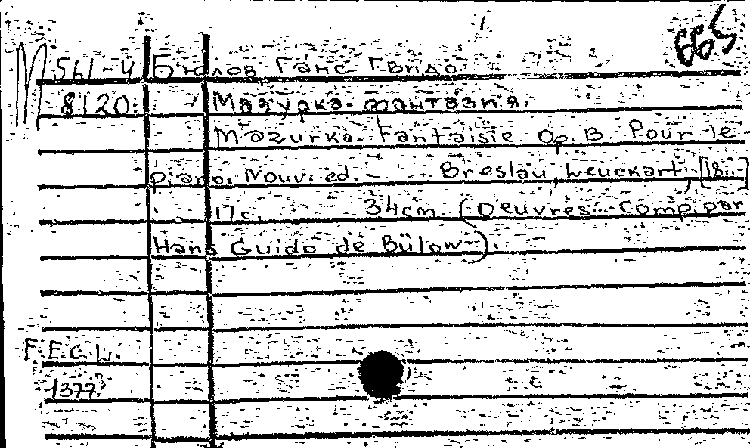 665
M 561-4 Бюлов Ганс Гвидо.
8120. Мазурка-фантазия.
Mazurka-Fantaisie Op. 13 Pour le
piano. Nouv. ed. - Breslau, Leuckart, [18...]
17 c. 34 cm. (Oeuvres... Comp. par
Hans Guido de Bülow-).
F.E.G.L.
1377.